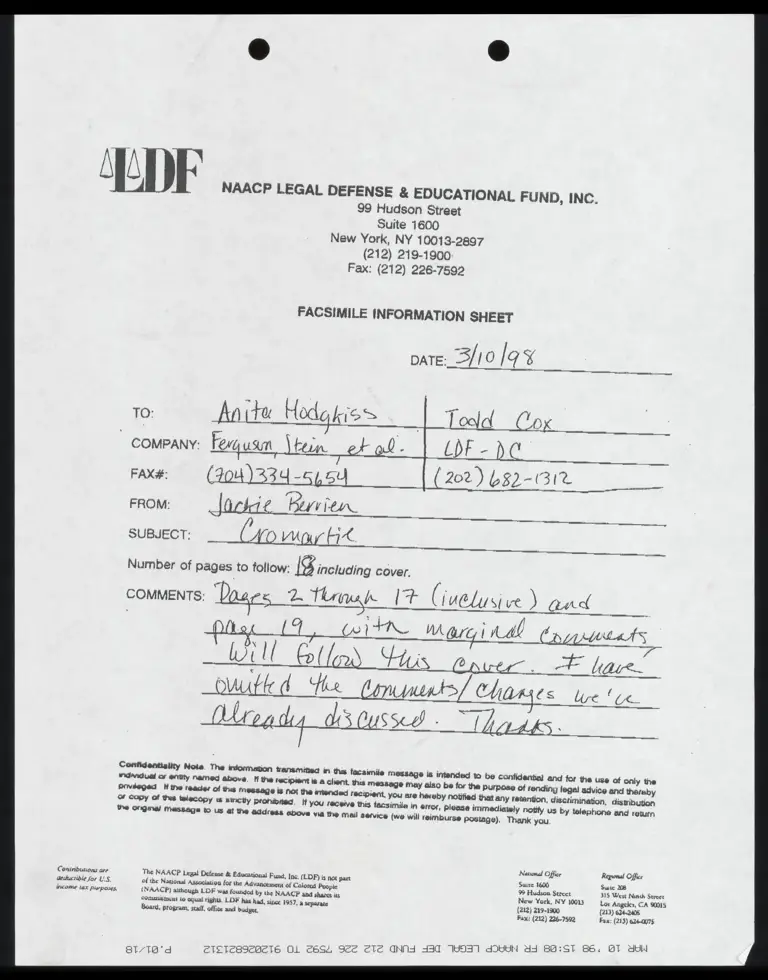 LDF
NAACP LEGAL DEFENSE & EDUCATIONAL FUND, INC.
99 Hudson Street
Suite 1600
New York, NY 10013-2897
(212) 219-1900
Fax: (212) 226-7592
FACSIMILE INFORMATION SHEET
DATE: 3/10/98
TO: Anita Hodgkiss Todd Cox
COMPANY: Ferguson, Stein, et al. LDF-DC
FAX#: (704)334-5654 (202)682-1312
FROM: Jackie Berrien
SUBJECT: Cromartie
Number of pages to follow: 18 including cover.
COMMENTS: Pages 2 through 17 (inclusive) and
page 19, with marginal comments,
will follow this cover. I have
omitted the comments/changes we've
already discussed. Thanks.
Confidentiality Note. The information transmitted in this facsimile message is intended to be confidential and for the use of only the
individual or entity named above. If the recipient is a client, this message may also be for the purpose of rending legal advice and thereby
privileged. If the reader of this message is not the intended recipient, you are hereby notified that any retention, discrimination, distribution
or copy of this telecopy is strictly prohibited. If you receive this facsimile in error, please immediately notify us by telephone and return
the original message to us at the address above via the mail service (we will reimburse postage). Thank you.
Contributions are
deductible for U.S.
income tax purposes.
The NAACP Legal Defense & Educational Fund, Inc. (LDF) is not part
of the National Association for the Advancement of Colored People
(NAACP) although LDF was founded by the NAACP and shares its
commitment to equal rights. LDF has had, since 1957, a separate
Board, program, staff, office and budget.
National Office
Suite 1600
99 Hudson Street
New York, NY 10013
(212) 219-1900
Fax: (212) 226-7592
Regional Office
Suite 208
315 West Ninth Street
Los Angeles, CA 90015
(213) 624-2405
Fax: (213) 624-0075
MAR 10 '98 15:08 FR NAACP LEGAL DEF FUND 212 226 7592 TO 912026821312 P.01/18